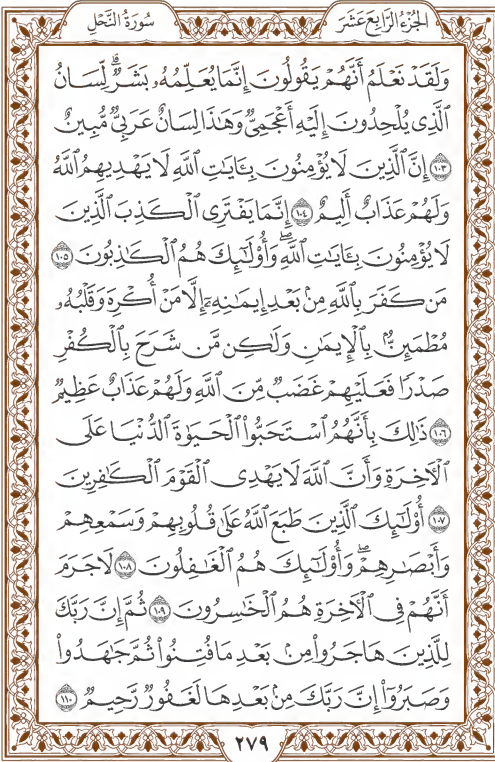 الجُزْءُ الرَّابِعَ عَشَرَ
سُورَةُ النَّحْلِ
وَلَقَدْ نَعْلَمُ أَنَّهُمْ يَقُولُونَ إِنَّمَا يُعَلِّمُهُۥ بَشَرٌۗ لِّسَانُ
ٱلَّذِى يُلْحِدُونَ إِلَيْهِ أَعْجَمِىٌّ وَهَٰذَا لِسَانٌ عَرَبِىٌّ مُّبِينٌ
١٠٣ إِنَّ ٱلَّذِينَ لَا يُؤْمِنُونَ بِـَٔايَٰتِ ٱللَّهِ لَا يَهْدِيهِمُ ٱللَّهُ
وَلَهُمْ عَذَابٌ أَلِيمٌ ١٠٤ إِنَّمَا يَفْتَرِى ٱلْكَذِبَ ٱلَّذِينَ
لَا يُؤْمِنُونَ بِـَٔايَٰتِ ٱللَّهِۖ وَأُو۟لَٰٓئِكَ هُمُ ٱلْكَٰذِبُونَ ١٠٥
مَن كَفَرَ بِٱللَّهِ مِنۢ بَعْدِ إِيمَٰنِهِۦٓ إِلَّا مَنْ أُكْرِهَ وَقَلْبُهُۥ
مُطْمَئِنٌّۢ بِٱلْإِيمَٰنِ وَلَٰكِن مَّن شَرَحَ بِٱلْكُفْرِ
صَدْرًا فَعَلَيْهِمْ غَضَبٌ مِّنَ ٱللَّهِ وَلَهُمْ عَذَابٌ عَظِيمٌ
١٠٦ ذَٰلِكَ بِأَنَّهُمُ ٱسْتَحَبُّوا۟ ٱلْحَيَوٰةَ ٱلدُّنْيَا عَلَى
ٱلْءَاخِرَةِ وَأَنَّ ٱللَّهَ لَا يَهْدِى ٱلْقَوْمَ ٱلْكَٰفِرِينَ
١٠٧ أُو۟لَٰٓئِكَ ٱلَّذِينَ طَبَعَ ٱللَّهُ عَلَىٰ قُلُوبِهِمْ وَسَمْعِهِمْ
وَأَبْصَٰرِهِمْۖ وَأُو۟لَٰٓئِكَ هُمُ ٱلْغَٰفِلُونَ ١٠٨ لَا جَرَمَ
أَنَّهُمْ فِى ٱلْءَاخِرَةِ هُمُ ٱلْخَٰسِرُونَ ١٠٩ ثُمَّ إِنَّ رَبَّكَ
لِلَّذِينَ هَاجَرُوا۟ مِنۢ بَعْدِ مَا فُتِنُوا۟ ثُمَّ جَٰهَدُوا۟
وَصَبَرُوٓا۟ إِنَّ رَبَّكَ مِنۢ بَعْدِهَا لَغَفُورٌ رَّحِيمٌ ١١٠
٢٧٩